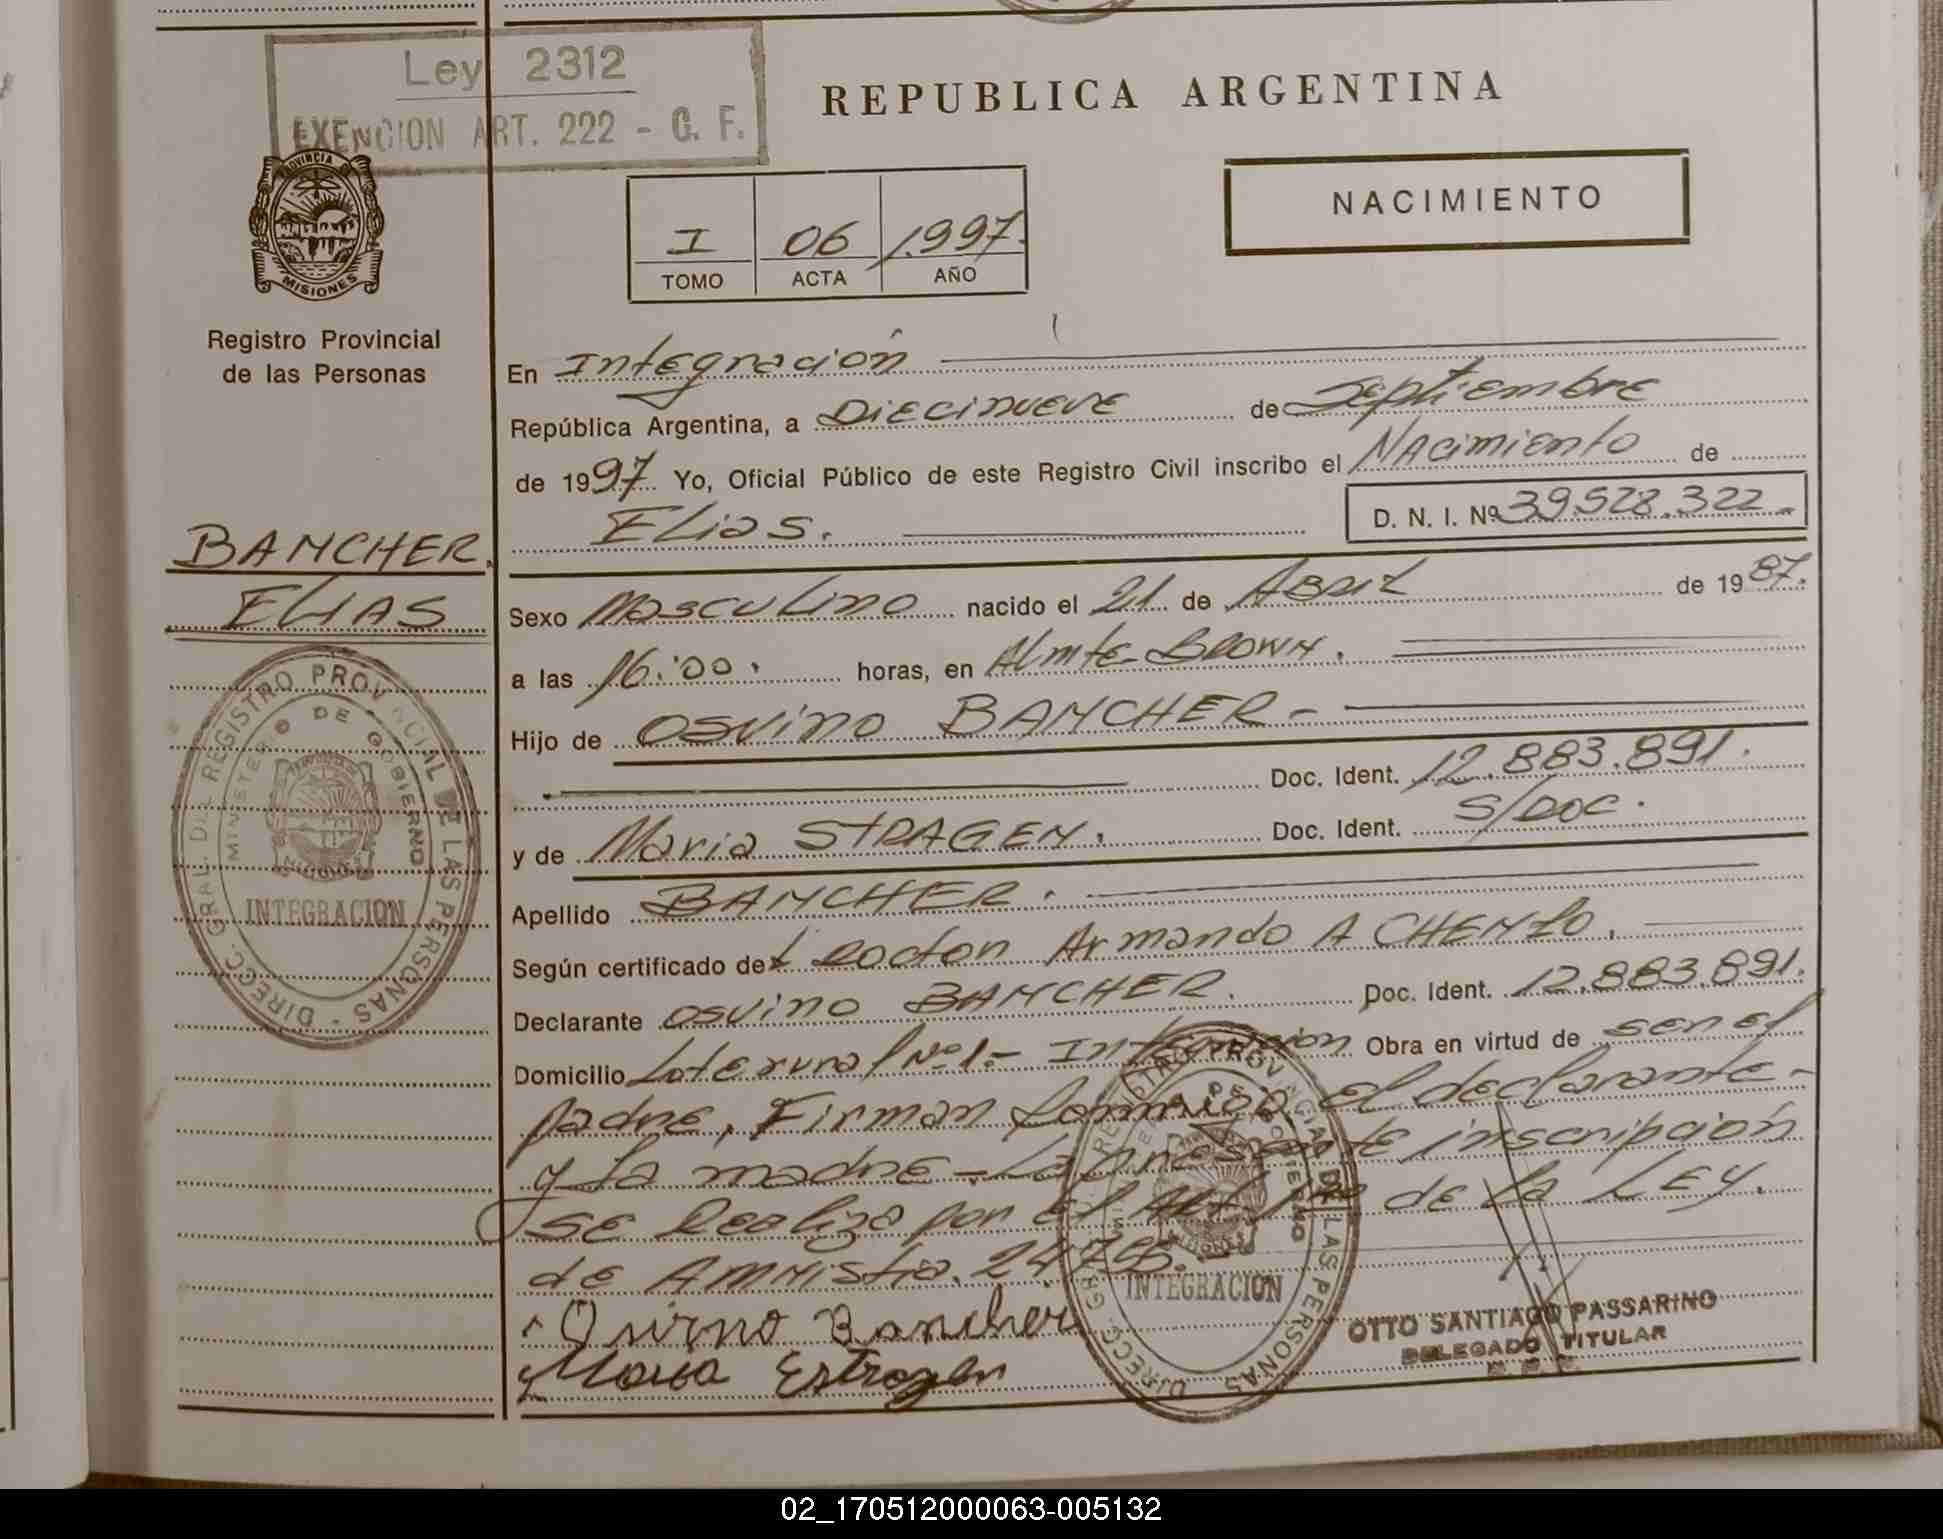 Ley 2312
EXENCION ART. 222 - C. F.
REPUBLICA ARGENTINA
NACIMIENTO
I 06 1.997.
TOMO ACTA AÑO
PROVINCIA
MISIONES
Registro Provincial
de las Personas
BANCHER.
ELIAS
DIRECC. GRAL. DEL REGISTRO PROVINCIAL DE LAS PERSONAS
DE GOBIERNO
MISIONES
INTEGRACION
En Integración
República Argentina, a Diecinueve de Septiembre
de 1997 Yo, Oficial Público de este Registro Civil inscribo el Nacimiento de
Elias. D. N. I. Nº 39.528.322.-
Sexo Masculino nacido el 21 de Abril de 1987.
a las 16:00. horas, en Almte-Brown.
Hijo de Osvino BANCHER-
Doc. Ident. 12.883.891.
y de Maria STRAGEN. Doc. Ident. S/DOC.
Apellido BANCHER.
Según certificado del Doctor Armando A CHENLO.
Declarante Osvino BANCHER. Doc. Ident. 12.883.891.
Domicilio Lote rural Nº 1.- Integración Obra en virtud de ser el
padre, Firman conmigo el declarante-
y la madre-La presente inscripción
se Realiza por el de la LEY.
de Amnistia. 24.755.
Osvino Bancher
Maria Estragen
REGISTRO PROVINCIAL DE LAS PERSONAS
DE GOBIERNO
MISIONES
INTEGRACION
OTTO SANTIAGO PASSARINO
DELEGADO TITULAR
02_170512000063-005132